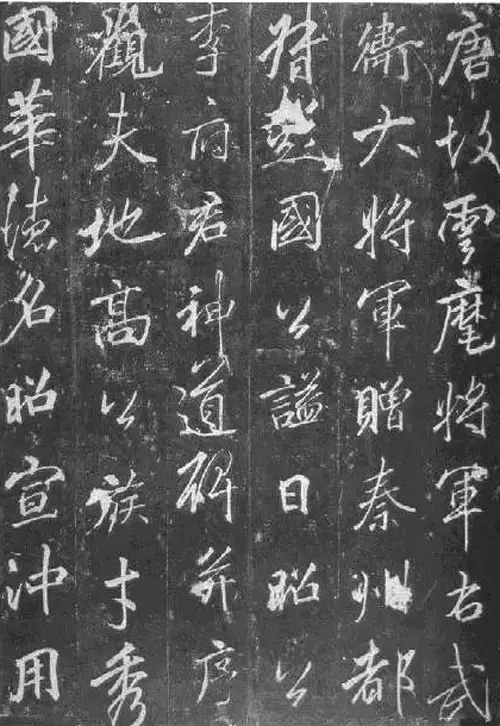 唐故雲麾將軍右武
衛大將軍贈秦州都
督國公謚曰昭公
李府君神道碑并序
觀夫地高公族才秀
國華德名昭宣沖用